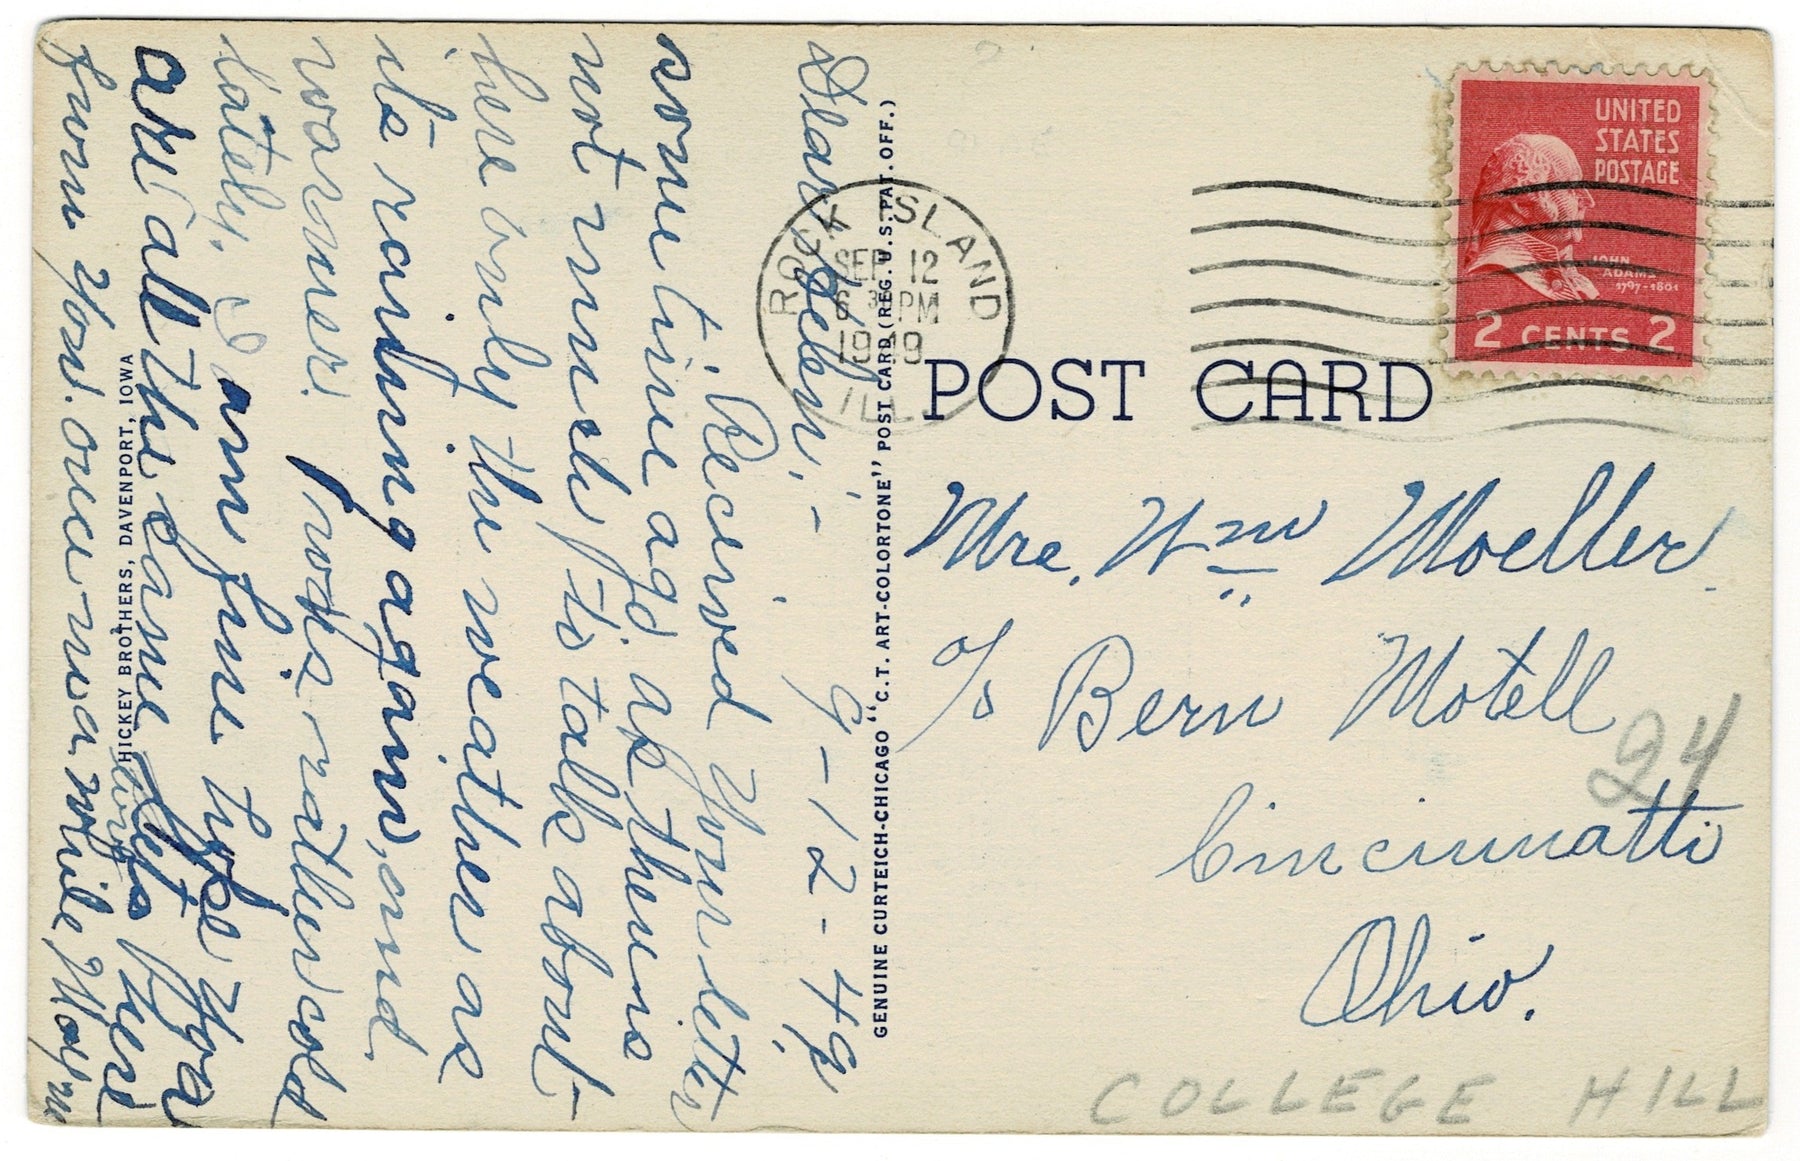 Dear Helen; - 9-12-49
Received your letter
some time ago. as there is
not much to talk about
here only the weather as
its raining again, and
warmer. has rather cold
lately. I am fine hope you
are all the same. Lets hear
from you once in a while,
GENUINE CURTEICH-CHICAGO "C.T. ART-COLORTONE" POST CARD (REG. U.S. PAT. OFF.)
HICKEY BROTHERS, DAVENPORT, IOWA
ROCK ISLAND
SEP 12
6 30 PM
1949
ILL.
UNITED
STATES
POSTAGE
JOHN
ADAMS
1797-1801
2 CENTS 2
POST CARD
Mrs. Wm Moeller
c/o Bern Motell
24
Cincinnatti
Ohio.
COLLEGE HILL